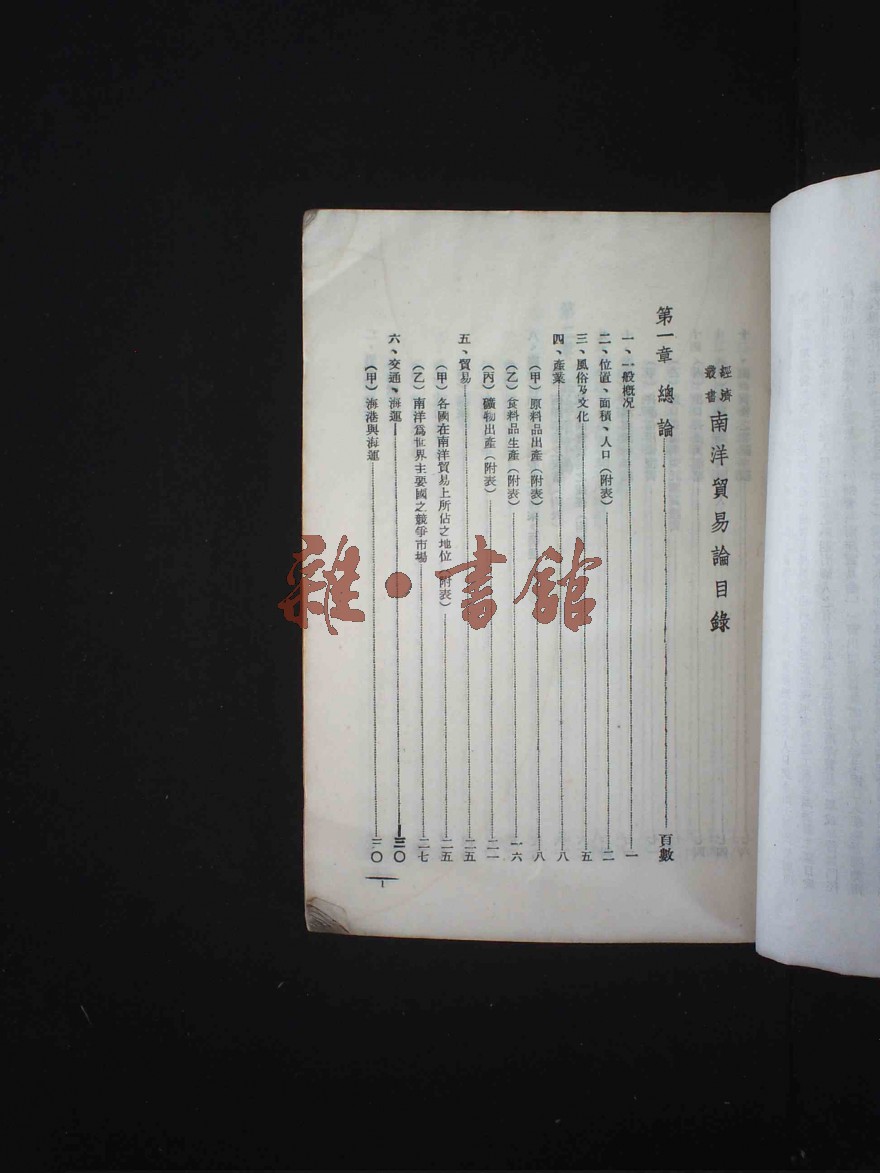 經濟叢書 南洋貿易論目錄
第一章 總論 頁數
一、一般概況 一
二、位置、面積、人口（附表） 二
三、風俗及文化 五
四、產業 八
（甲）原料品出產（附表） 八
（乙）食料品生產（附表） 一六
（丙）礦物出產（附表） 二一
五、貿易 二五
（甲）各國在南洋貿易上所佔之地位（附表） 二五
（乙）南洋爲世界主要國之競爭市場 二七
六、交通、海運 三〇
（甲）海港與海運 三〇
1
雜·書館